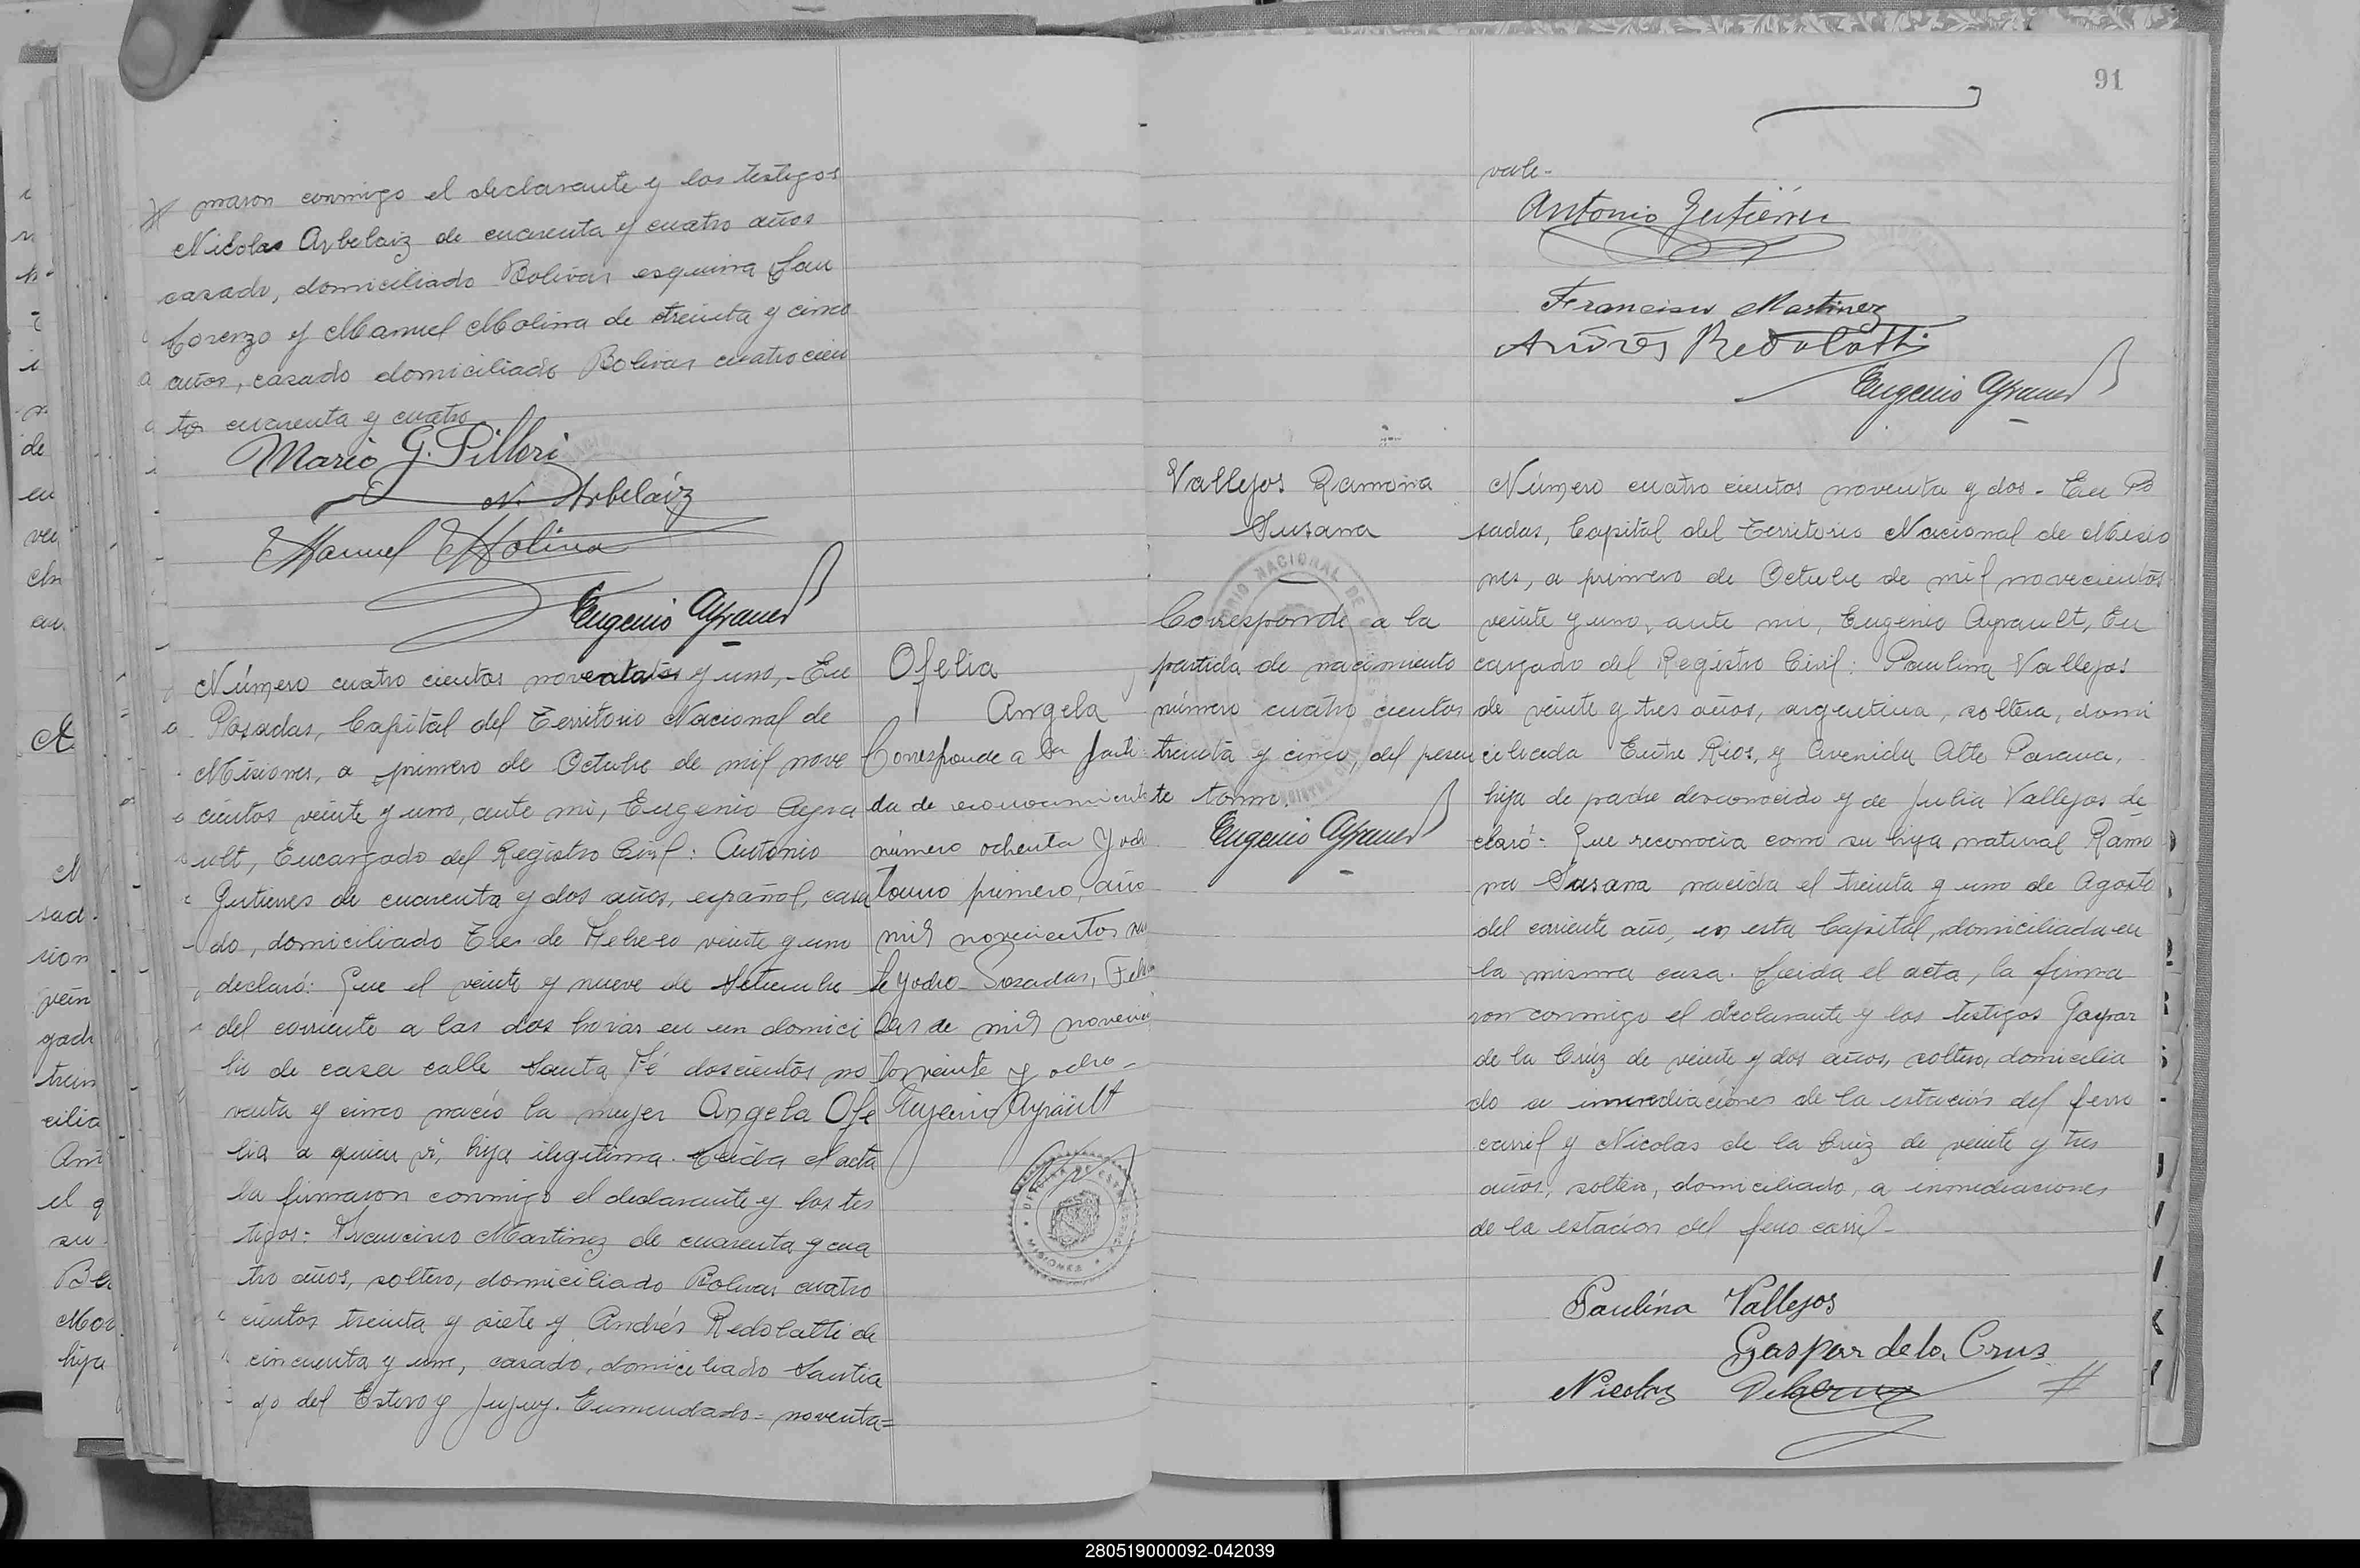 maron conmigo el declarante y los testigos
Nicolas Arbelaiz de cuarenta y cuatro años
casado, domiciliado Bolivar esquina San
Lorenzo y Manuel Molina de treinta y cinco
años, casado domiciliado Bolivar cuatrocien
tos cuarenta y cuatro
Mario G. Pillori
N. Arbelaiz
Manuel Molina
Eugenio Ayrault
Número cuatro cientos noventa y uno,- En
Posadas, Capital del Territorio Nacional de
Misiones, a primero de Octubre de mil nove
cientos veinte y uno, ante mi, Eugenio Ayra
ult, Encargado del Registro Civil: Antonio
Gutierres de cuarenta y dos años, español, casa
do, domiciliado Tres de Febrero veinte y uno
declaró: Que el veinte y nueve de Setiembre
del corriente a las dos horas en un domici
lio de casa calle Santa Fé doscientos no
venta y cinco nació la mujer Angela Ofe
lia a quien ví, hija ilegitima. Leida el acta
la firmaron conmigo el declarante y los tes
tigos: Francisco Martinez de cuarenta y cua
tro años, soltero, domiciliado Bolivar cuatro
cientos treinta y siete y Andrés Redolatti de
cincuenta y uno, casado, domiciliado Santia
go del Estero y Jujuy. Enmendado = noventa=
Ofelia
Angela
Corresponde a la parti
da de reconocimiento
número ochenta y och
tomo primero, año
mil novecientos
te y ocho - Posadas,
de mil novecien
tos veinte y ocho -
Eugenio Ayrault
91
vale.
Antonio Gutiérrez
Francisco Martinez
Andrés Redolatti
Eugenio Ayrault
Vallejos Ramona
Susana
Corresponde a la
partida de nacimiento
número cuatro cientos
treinta y cinco, del presen
te tomo.
Eugenio Ayrault
Número cuatro cientos noventa y dos - En Po
sadas, Capital del Territorio Nacional de Misio
nes, a primero de Octubre de mil novecientos
veinte y uno, ante mi, Eugenio Ayrault, En
cargado del Registro Civil: Paulina Vallejos
de veinte y tres años, argentina, soltera, domi
ciliada Entre Rios, y Avenida Alte Parana,
hija de padre desconocido y de Julia Vallejos de
claró: Que reconocia como su hija natural Ramo
na Susana nacida el treinta y uno de Agosto
del corriente año, en esta Capital, domiciliada en
la misma casa. Leida el acta, la firma
ron conmigo el declarante y los testigos Gaspar
de la Cruz de veinte y dos años, soltero, domicilia
do a inmediaciones de la estación del ferro
carril y Nicolas de la Cruz de veinte y tres
años, soltero, domiciliado, a inmediaciones
de la estacion del ferro carril -
Paulina Vallejos
Gaspar de la Crus
Nicolas Delacruz
280519000092-042039